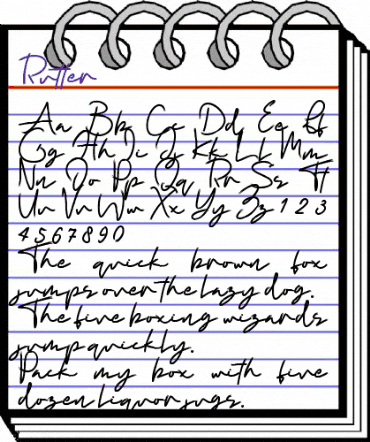 Rutten
Aa Bb Cc Dd Ee Ff
Gg Hh Ii Jj Kk Ll Mm
Nn Oo Pp Qq Rr Ss Tt
Uu Vv Ww Xx Yy Zz 1 2 3
4 5 6 7 8 9 0
The quick brown fox
jumps over the lazy dog.
The five boxing wizards
jump quickly.
Pack my box with five
dozen liquor jugs.